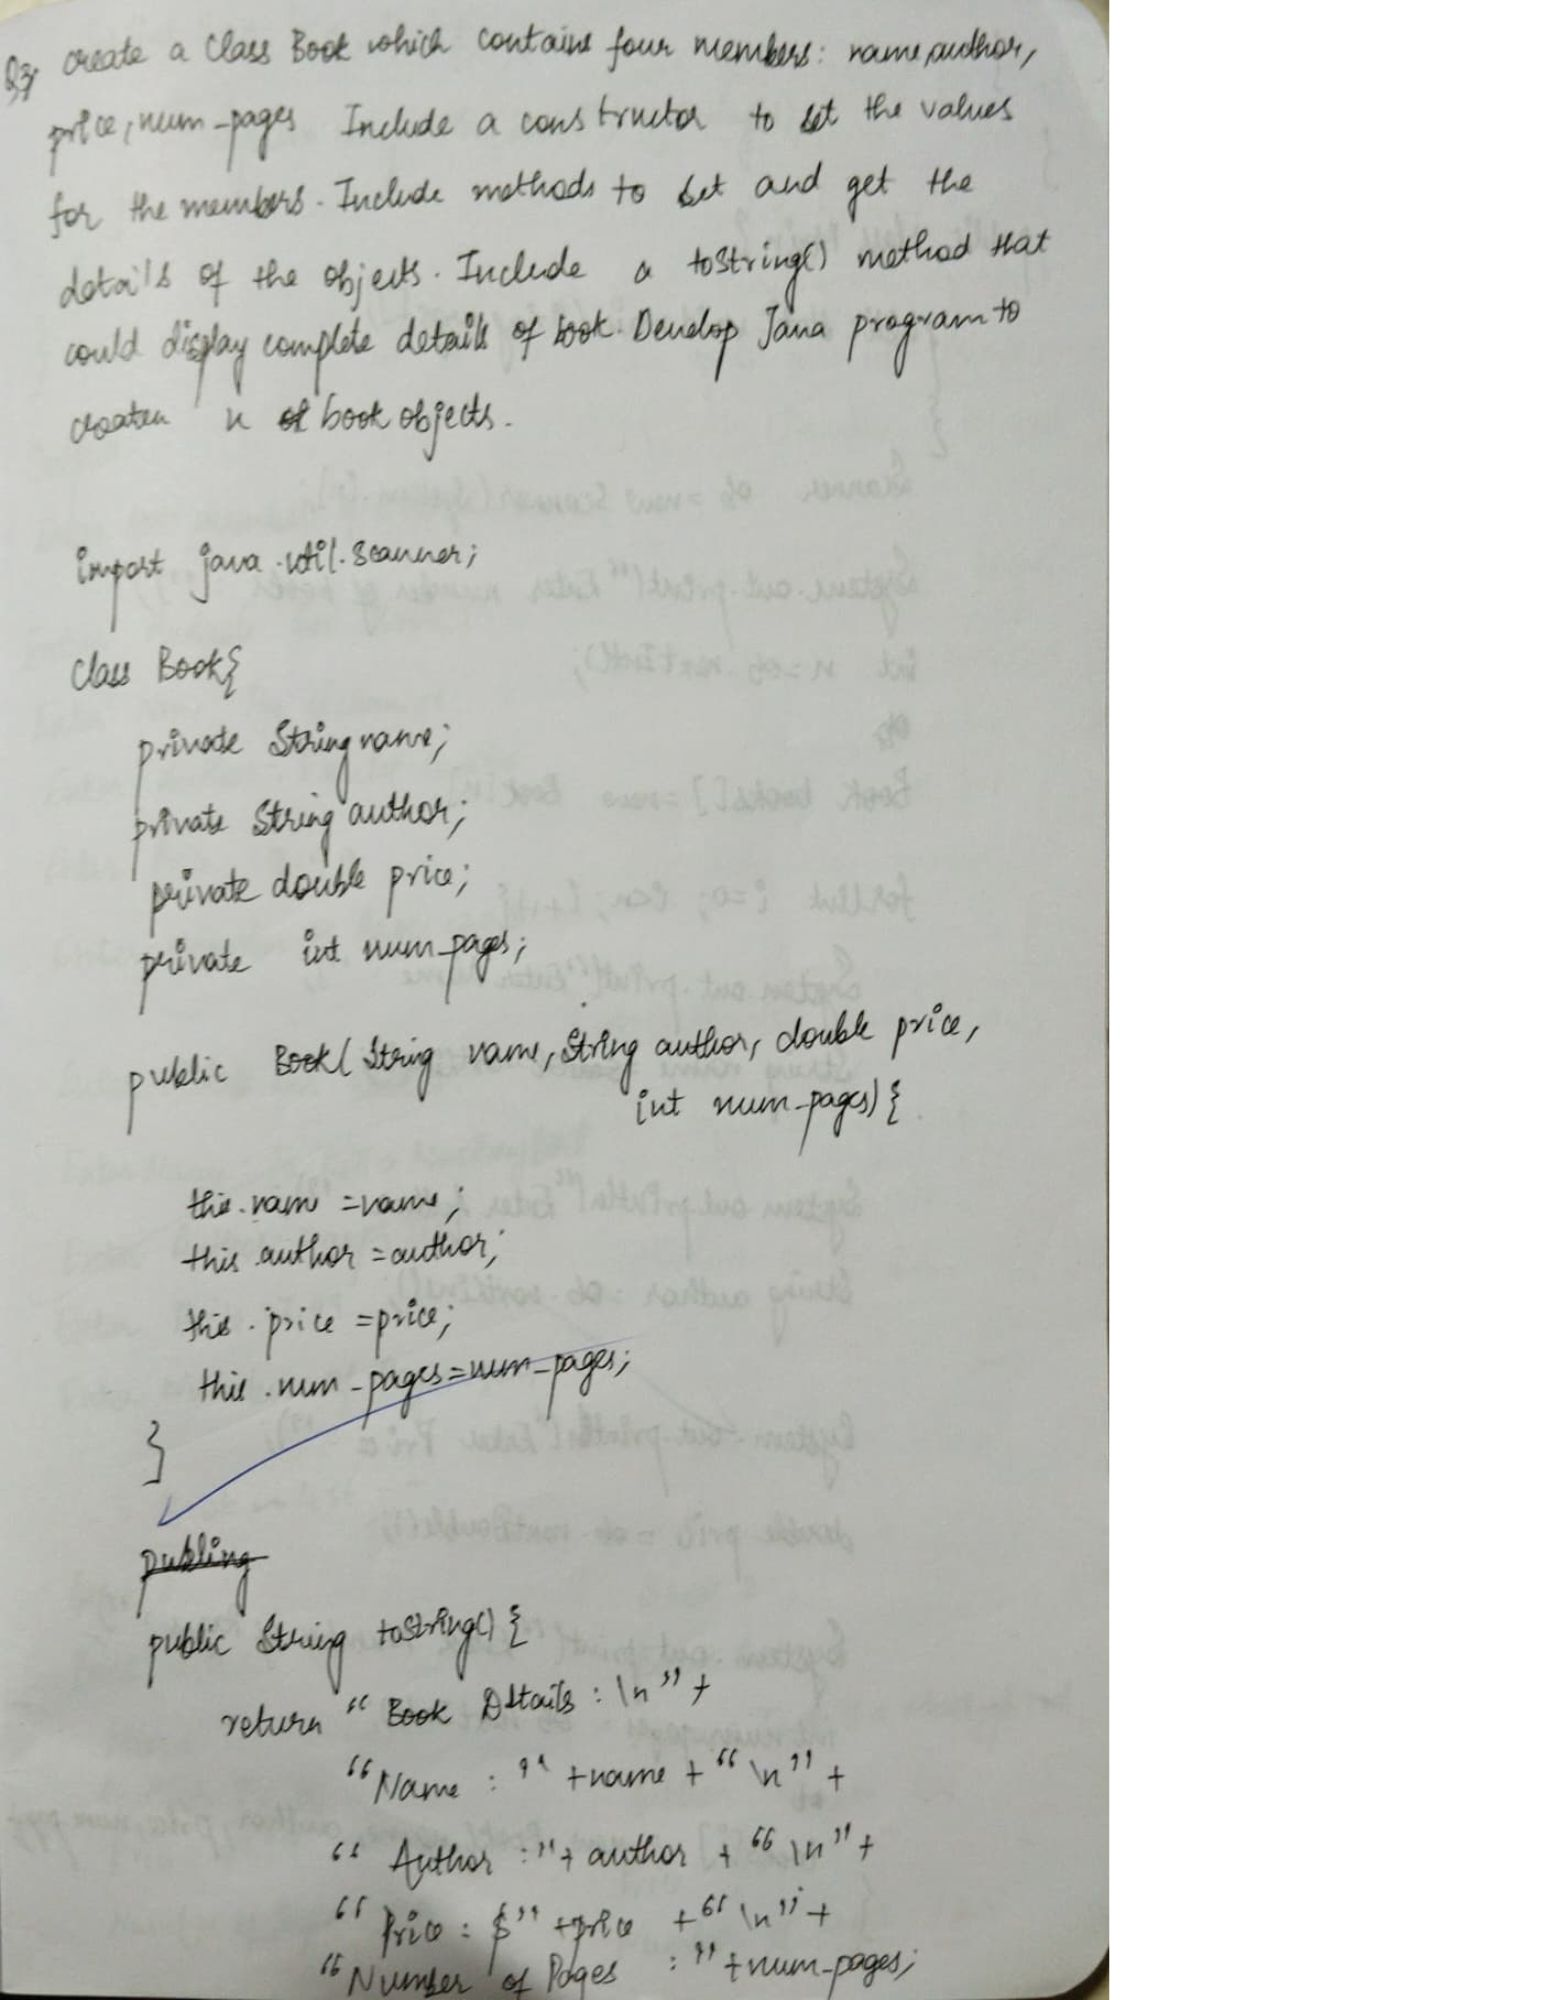 Q3, create a Class Book which contains four members: name, author,
price, num-pages Include a constructor to set the values
for the members. Include methods to set and get the
details of the objects. Include a toString() method that
could display complete details of book. Develop Java program to
n book objects.
import java.util.Scanner;
class Book{
private String name;
private String author;
private double price;
private int num_pages;
public Book( String name, String author, double price,
int num-pages) {
this.name = name;
this.author = author;
this.price = price;
this.num-pages = num-pages;
}
public String toString() {
return "Book Details : \n" +
"Name : " + name + "\n" +
"Author :" + author + "\n" +
"Price : $" + price + "\n" +
"Number of Pages : " + num-pages;